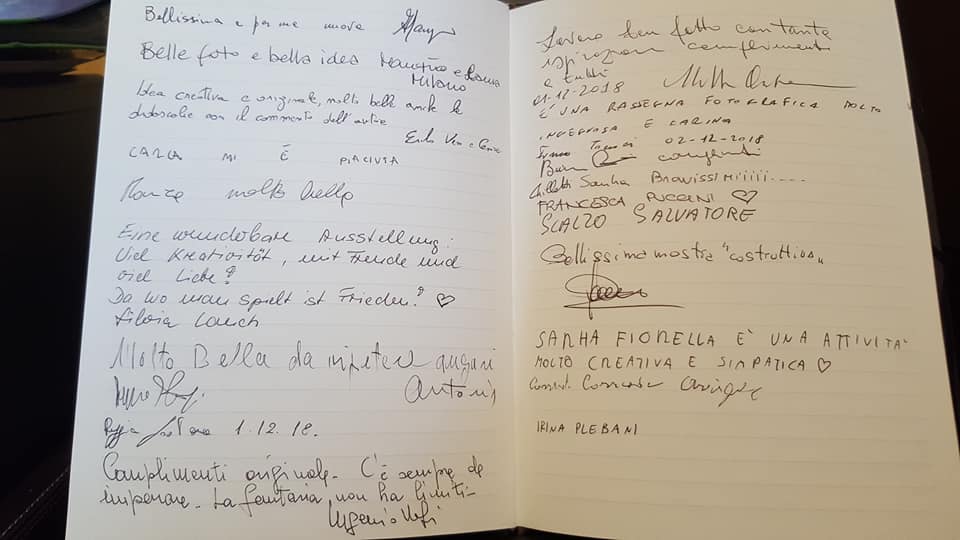 Bellissima e per me nuova
Belle foto e bella idea Maurizio e
Milano
Idea creativa e originale, molto belle anche le
didascalie con il commento dell'autore
CARLA MI È PIACIUTA
molto bello
Eine wunderbare Ausstellung!
Viel Kreativität, mit Freude und
viel Liebe!
Da wo man spielt ist Frieden! ♡
Silvia
Molto Bella da ripetere auguri
Antonio
1.12.18.
Complimenti originale. C'è sempre da
imparare. La fantasia non ha limiti-
Lavoro ben fatto con tanta
ispirazione complimenti
a tutti
01-12-2018
È UNA RASSEGNA FOTOGRAFICA MOLTO
INGEGNOSA E CARINA
02-12-2018
Samha Bravissimiiiii....
FRANCESCA PUCCINI ♡
SCALZO SALVATORE
Bellissima mostra "costruttiva"
SAMHA FIORELLA E' UNA ATTIVITA'
MOLTO CREATIVA E SIMPATICA ♡
IRINA PLEBANI